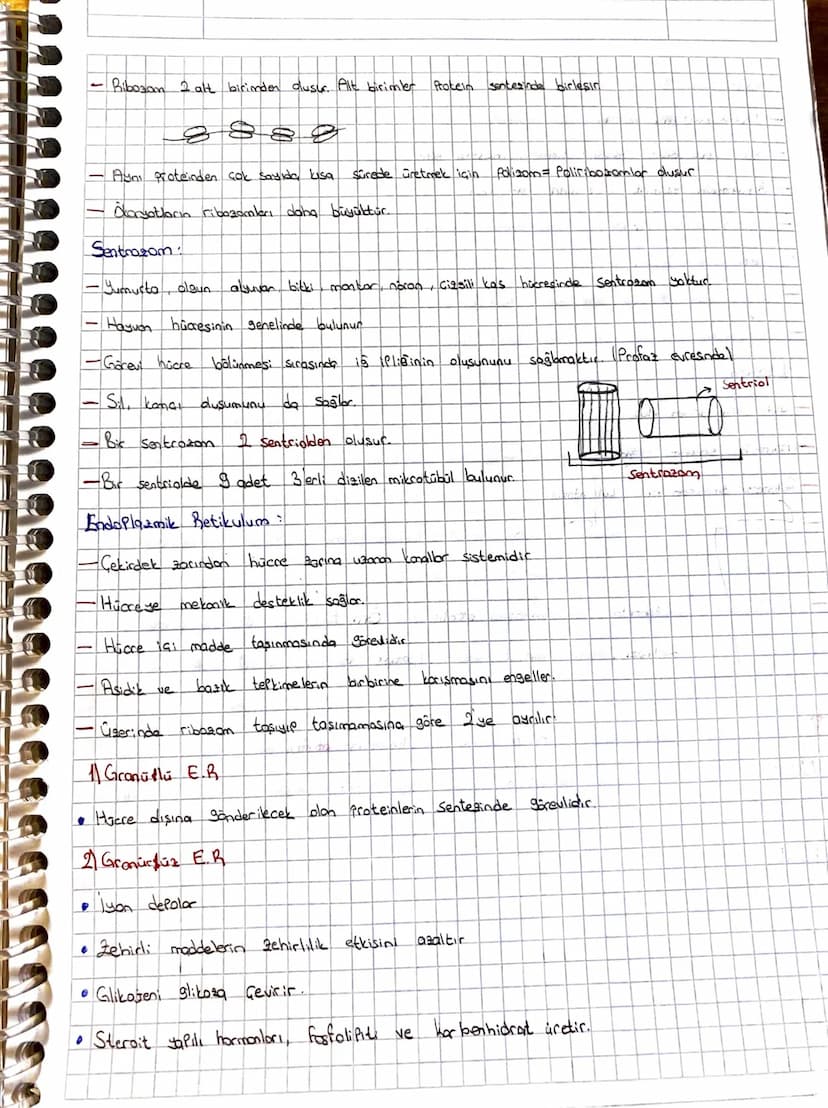 - Ribozom 2 alt birimden oluşur. Alt birimler Protein sentezinde birleşir
- Aynı proteinden çok sayıda kısa sürede üretmek için Polizom = Poliribozomlar oluşur
- Ökaryotların ribozomları daha büyüktür.
Sentrozom:
- Yumurta, olgun alyuvar, bitki, mantar, nöron, çizgili kas hücresinde sentrozom yoktur.
- Hayvan hücresinin genelinde bulunur
- Görevi hücre bölünmesi sırasında iğ ipliğinin oluşununu sağlamaktır. (Profaz evresinde)
Sentriol
- Sil, kamçı oluşumunu da sağlar.
- Bir sentrozom 2 sentriolden oluşur.
- Bir sentriolde 9 adet 3'erli dizilen mikrotübül bulunur.
Sentrozom
Endoplazmik Retikulum:
- Çekirdek zarından hücre zarına uzanan kanallar sistemidir
- Hücreye mekanik desteklik sağlar.
- Hücre içi madde taşınmasında görevlidir
- Asidik ve bazik tepkimelerin birbirine karışmasını engeller.
- Üzerinde ribozom taşıyıp taşımamasına göre 2'ye ayrılır.
1) Granüllü E.R
• Hücre dışına gönderilecek olan proteinlerin sentezinde görevlidir.
2) Granülsüz E.R
• İyon depolar
• Zehirli maddelerin zehirlilik etkisini azaltır
• Glikojeni glikoza çevirir.
• Steroit yapılı hormonları, fosfolipiti ve karbonhidrat üretir.